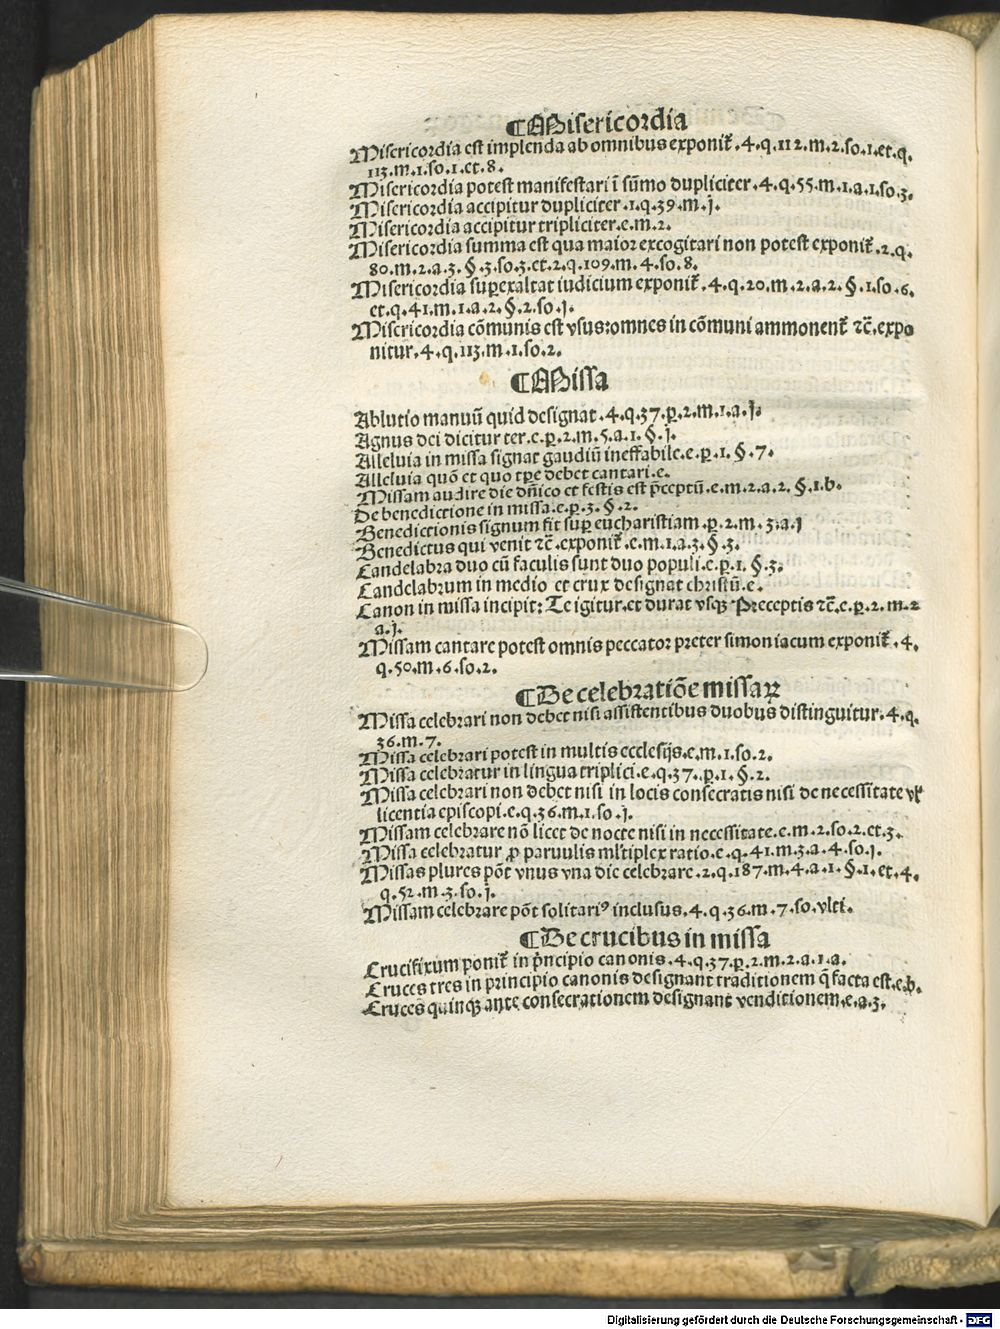 ¶Misericordia
Misericordia est implenda ab omnibus exponit᷑.4.q.112.m.2.so.1.et.q.
113.m.1.so.1.et.8.
Misericordia potest manifestari ĩ sũmo dupliciter.4.q.55.m.1.a.1.so.3.
Misericordia accipitur dupliciter.1.q.39.m.j.
Misericordia accipitur tripliciter.e.m.2.
Misericordia summa est qua maior excogitari non potest exponit᷑.2.q.
80.m.2.a.3.§.3.so.3.et.2.q.109.m.4.so.8.
Misericordia sup̱exaltat iudicium exponit᷑.4.q.20.m.2.a.2.§.1.so.6.
et.q.41.m.1.a.2.§.2.so.j.
Misericordia cõmunis est vsus:omnes in cõmuni ammonent᷑ ⁊c̃.expo
nitur.4.q.113.m.1.so.2.
¶Missa
Ablutio manuũ quid designat.4.q.37.p̱.2.m.1.a.j.
Agnus dei dicitur ter.e.p̱.2.m.5.a.1.§.j.
Alleluia in missa signat gaudiũ ineffabile.e.p̱.1.§.7.
Alleluia quõ et quo tp̃e debet cantari.e.
Missam audire die dñico et festis est p̃ceptũ.e.m.2.a.2.§.1.b.
De benedictione in missa.e.p̱.3.§.2.
Benedictionis signum fit sup̱ eucharistiam.p̱.2.m.3.a.j
Benedictus qui venit ⁊c̃.exponit᷑.e.m.1.a.3.§.3.
Candelabra duo cũ faculis sunt duo populi.e.p̱.1.§.3.
Candelabrum in medio et crux designat christũ.e.
Canon in missa incipit: Te igitur.et durat vsqꝫ Preceptis ⁊c̃.e.p̱.2.m.2
a.j.
Missam cantare potest omnis peccator preter simoniacum exponit᷑.4.
q.50.m.6.so.2.
¶De celebratiõe missaꝝ
Missa celebrari non debet nisi assistentibus duobus distinguitur.4.q.
36.m.7.
Missa celebrari potest in multis ecclesijs.e.m.1.so.2.
Missa celebratur in lingua triplici.e.q.37.p̱.1.§.2.
Missa celebrari non debet nisi in locis consecratis nisi de necessitate vl̃
licentia episcopi.e.q.36.m.1.so.j.
Missam celebrare nõ licet de nocte nisi in necessitate.e.m.2.so.2.et.3.
Missa celebratur ꝓ paruulis ml̃tiplex ratio.e.q.41.m.3.a.4.so.j.
Missas plures põt vnus vna die celebrare.2.q.187.m.4.a.1.§.1.et.4.
q.52.m.3.so.j.
Missam celebrare põt solitariꝰ inclusus.4.q.36.m.7.so.vlti.
¶De crucibus in missa
Crucifixum ponit᷑ in p̃ncipio canonis.4.q.37.p̱.2.m.2.a.1.a.
Cruces tres in principio canonis designant traditionem q̃ facta est.e.b.
Cruces quinqꝫ ante consecrationem designant venditionem.e.a.3.
Digitalisierung gefördert durch die Deutsche Forschungsgemeinschaft - DFG